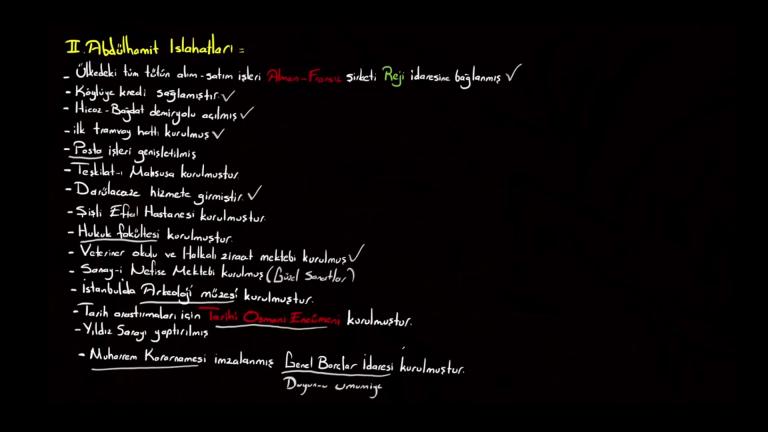 II. Abdülhamit Islahatları =
- Ülkedeki tüm tütün alım-satım işleri Alman-Fransız şirketi Reji idaresine bağlanmış ✓
- Köylüye kredi sağlamıştır ✓
- Hicaz-Bağdat demiryolu açılmış ✓
- ilk tramvay hattı kurulmuş ✓
- Posta işleri genişletilmiş
- Teşkilat-ı Mahsusa kurulmuştur
- Darülaceze hizmete girmiştir. ✓
- Şişli Effal Hastanesi kurulmuştur
- Hukuk fakültesi kurulmuştur.
- Veteriner okulu ve Halkalı ziraat mektebi kurulmuş ✓
- Sanay-i Nefise Mektebi kurulmuş (Güzel Sanatlar)
- İstanbulda Arkeoloji müzesi kurulmuştur.
- Tarih araştırmaları için Tarihi Osmani Encümeni kurulmuştur.
- Yıldız Sarayı yaptırılmış
- Muharrem Kararnamesi imzalanmış Genel Borçlar İdaresi kurulmuştur.
Duyun-u umumiye